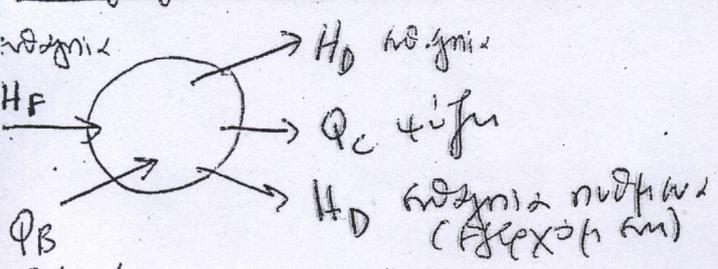 ενθαλπία
H_D ενθαλπία
H_F
Q_C ψύξη
H_D ενθαλπία πυθμένα
Q_B
(εξερχόμενη)